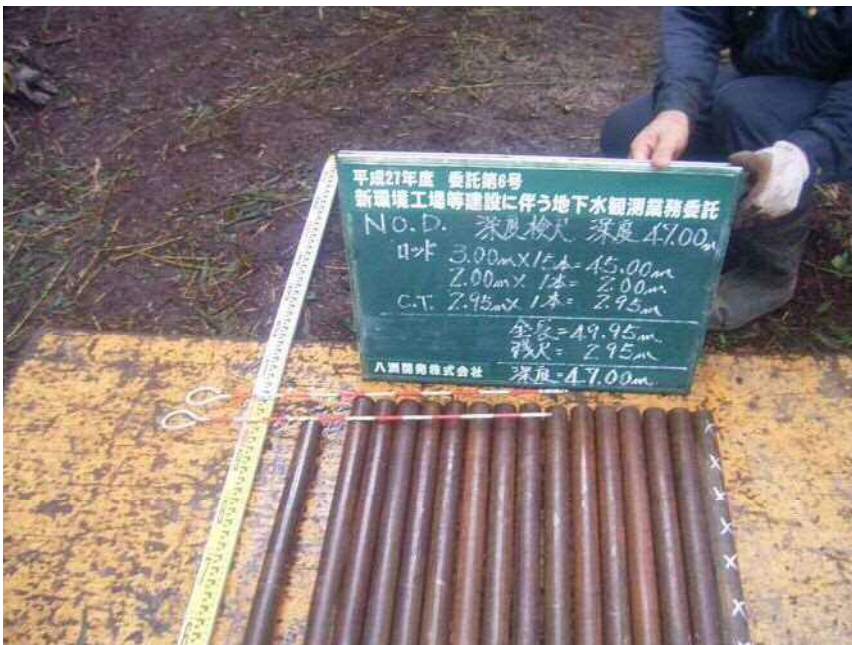 平成27年度 委託第6号
新環境工場等建設に伴う地下水観測業務委託
NO.D. 深度検尺 深度47.00m
ロッド 3.00m×15本=45.00m
2.00m×1本=2.00m
C.T. 2.95m×1本=2.95m
全長=49.95m
残尺=2.95m
八洲開発株式会社 深度=47.00m